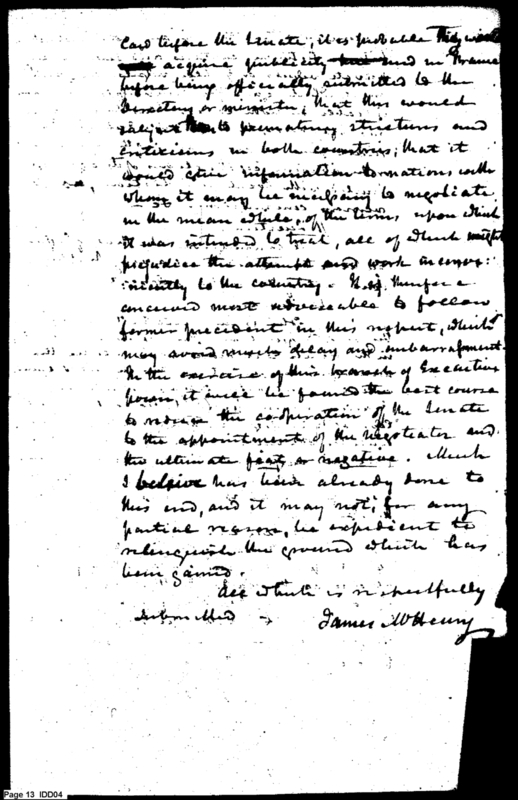 laid before the Senate, it is probable they would
acquire publicity and in France
before being officially submitted to the
Directory or minister, that this would
subject to premature strictures and
criticisms in both countries; that it
would give information to nations with
whom it may be necessary to negotiate
in the mean while, of the terms upon which
it was intended to treat, all of which might
prejudice the attempt and work inconve-
niently to the country. It is therefore
conceived most adviseable to follow
former precedent in this respect, which
may avoid much delay and embarrassment.
In the exercise of this branch of Executive
power, it will be found the best course
to reduce the cooperation of the Senate
to the appointment of the Negotiator and
the ultimate fiat or negative. Much
I beleive has been already done to
this end, and it may not, for any
partial reason, be expedient to
relinquish the ground which has
been gained.
All which is respectfully
submitted
James McHenry
Page 13 IDD04